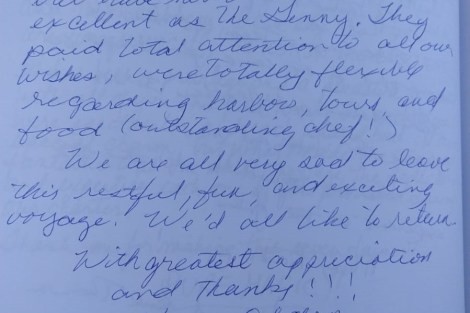 excellent as the Genny. They
paid total attention to all our
wishes, were totally flexible
regarding harbors, tours, and
food (outstanding chef!)
We are all very sad to leave
this restful, fun, and exciting
voyage. We'd all like to return.
With greatest appreciation
and Thanks!!!